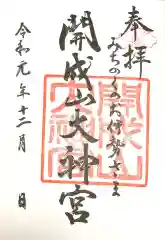 奉拝
みちのくのお伊勢さま
開成山大神宮
令和元年十二月 日
開成山
大神宮